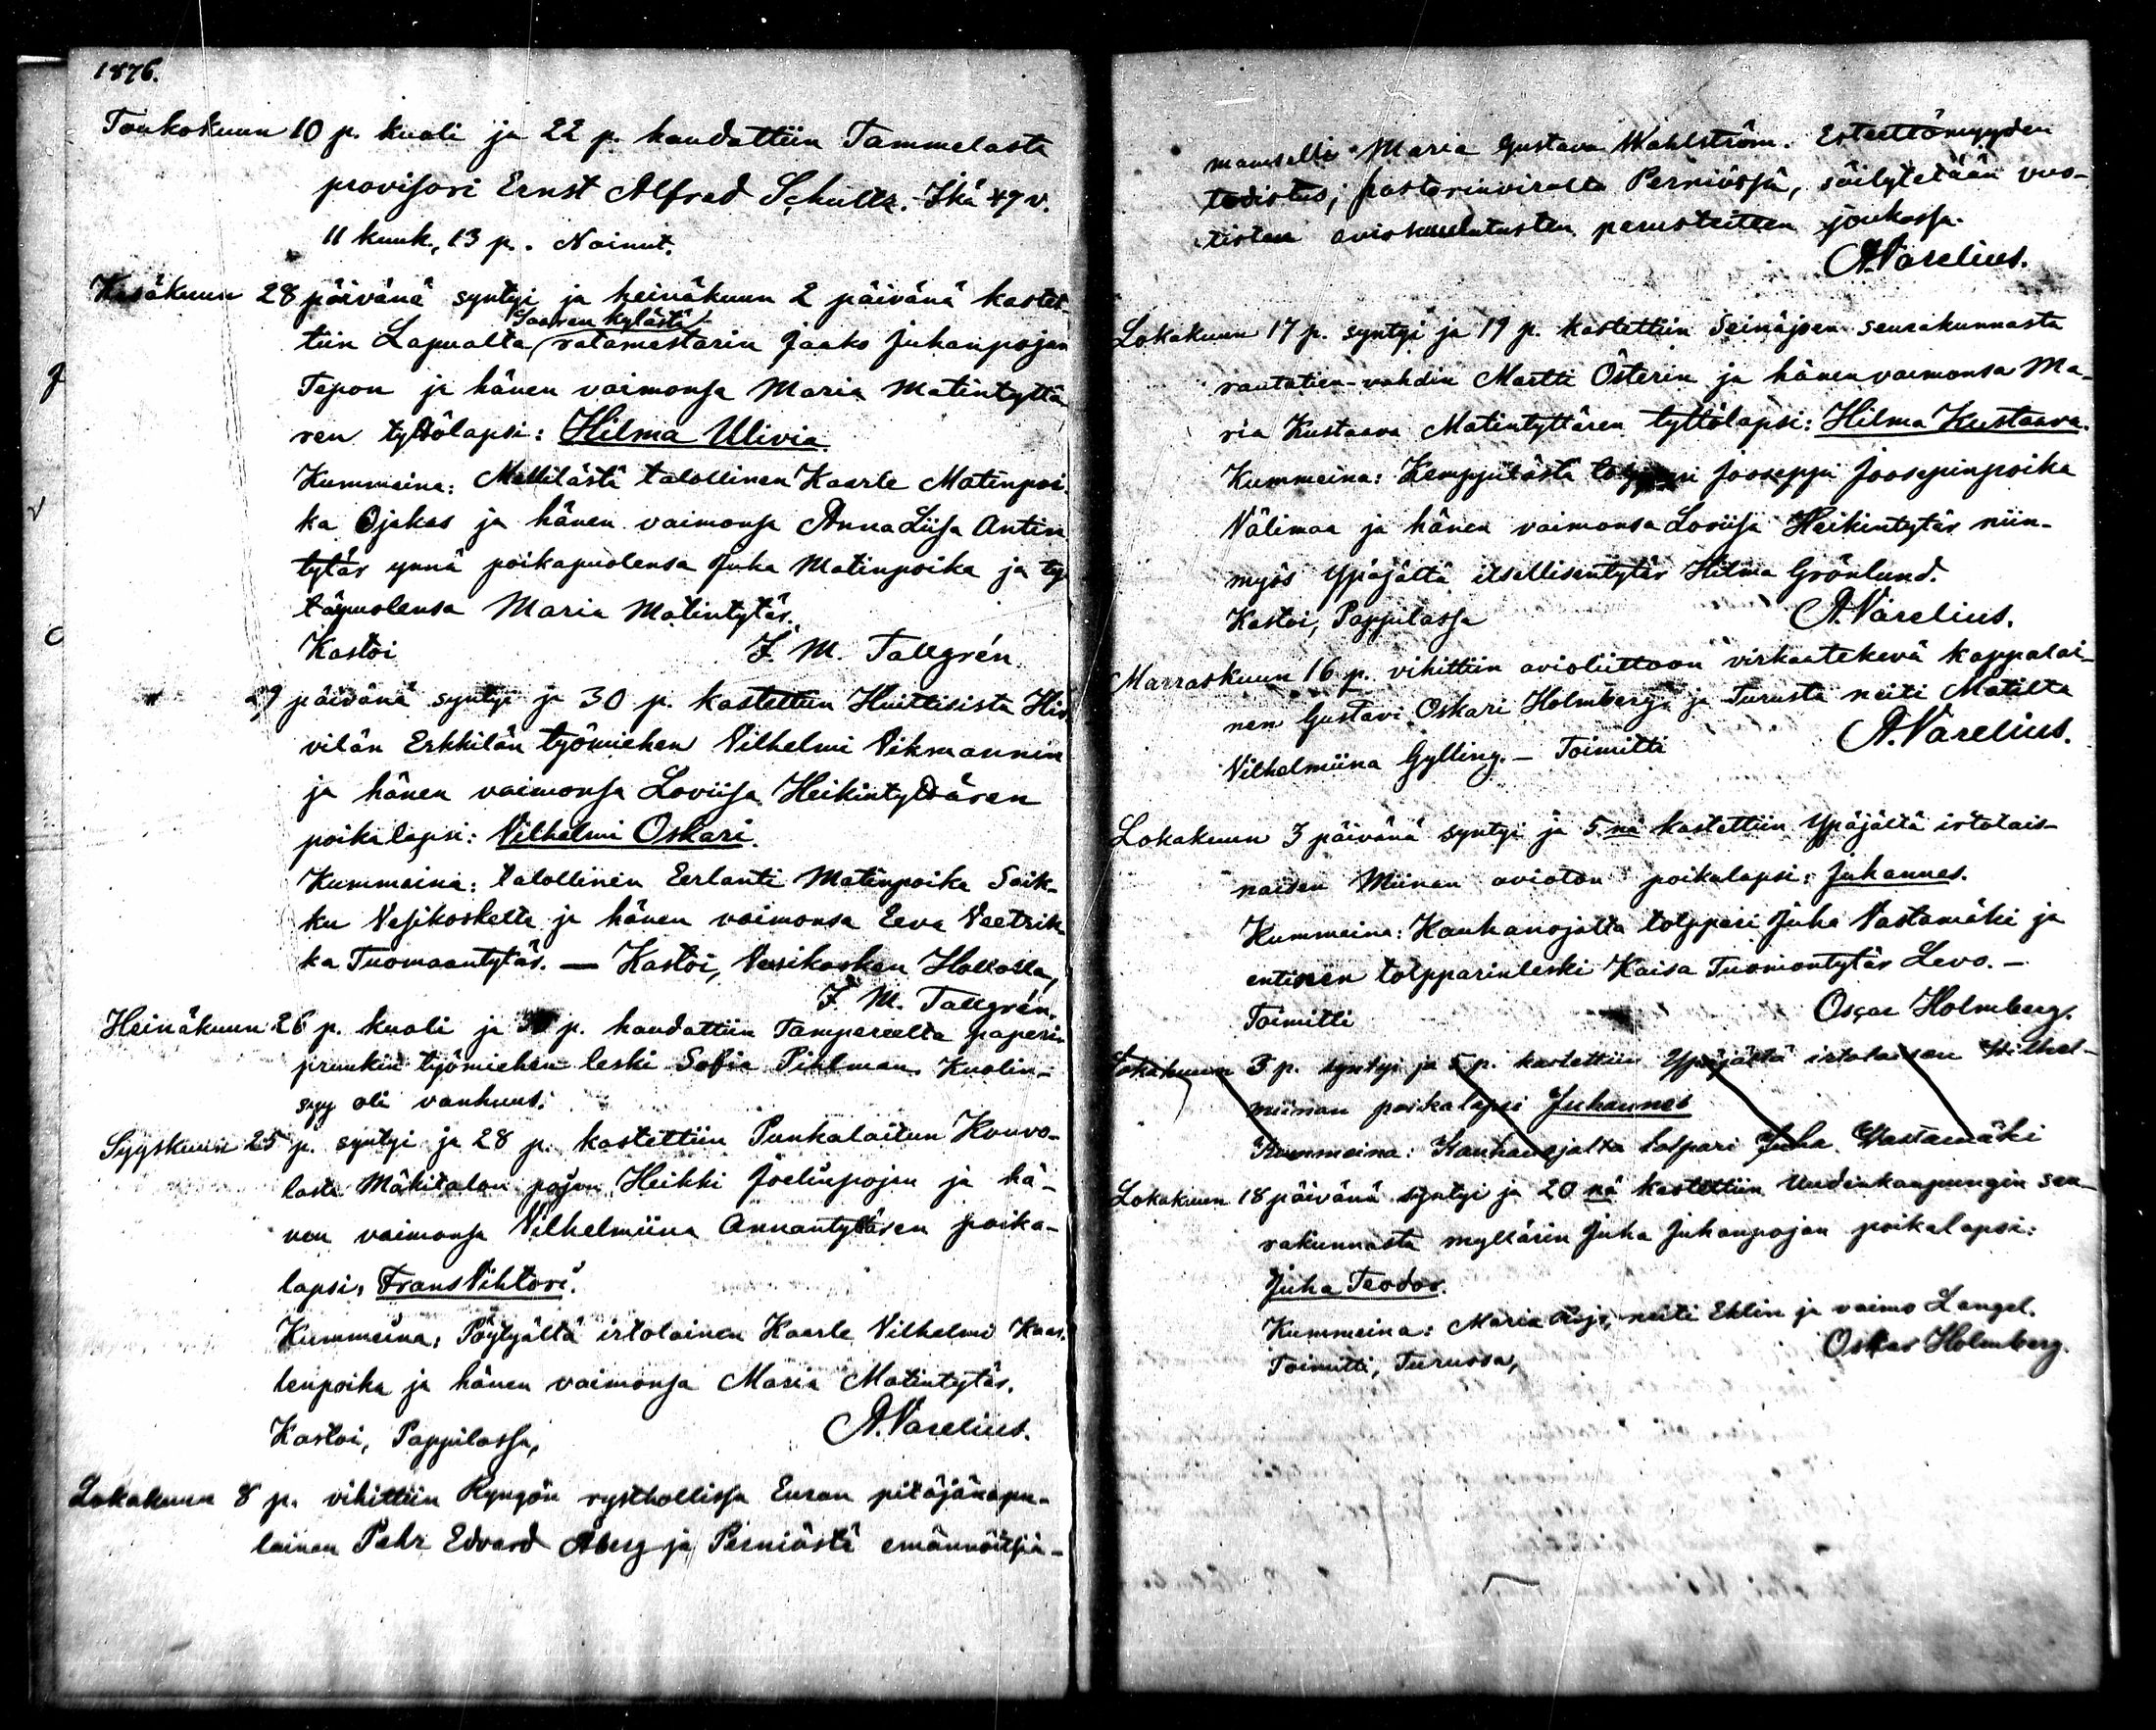 1876.
Toukokuun 10 p. kuoli ja 22 p. haudattiin Tammelasta
provisori Ernst Alfred Schultz. Ikä 47 v.
11 kuuk., 13 p. Nainut.
Kesäkuun 28 päivänä syntyi ja heinäkuun 2 päivänä kastet-
Saaren kylästä
tiin Lapualta ratamestarin Jaako Juhanpojan
Tepon ja hänen vaimonsa Maria Matintyttä
ren tyttölapsi: Hilma Ulivia.
Kummeina: Mellilästä talollinen Kaarle Matinpoi-
ka Ojakas ja hänen vaimonsa Anna Liisa Antin
tytär ynnä poikapuolensa Juha Matinpoika ja ty-
tärpuolensa Maria Matintytär.
Kastoi F. M. Tallgrén
29 päivänä syntyi ja 30 p. kastettiin Huittisista
vilän Erkkilän työmiehen Vilhelmi Vikmannin
ja hänen vaimonsa Loviisa Heikintyttären
poikalapsi: Vilhelmi Oskari.
Kummeina: talollinen Eerlanti Matinpoika Saik-
ku Vesikoskelta ja hänen vaimonsa Eeva Veetrik-
ka Tuomaantytär. — Kastoi, Vesikosken Hollolla,
F. M. Tallgrén.
Heinäkuun 26 p. kuoli ja p. haudattiin Tampereelta paperi
pruukin työmiehen leski Sofia Pihlman. Kuolin-
syy oli vanhuus.
Syyskuun 25 p. syntyi ja 28 p. kastettiin Punkalaitun Kouvo-
lasta Mäkitalon pojan Heikki Joelinpojan ja hä-
nen vaimonsa Vilhelmiina Annantyttären poika-
lapsi: Frans Vihtori.
Kummeina: Pöytyältä irtolainen Kaarle Vilhelmi Kaar-
lenpoika ja hänen vaimonsa Maria Matintytär.
Kastoi, Pappilassa, A. Varelius.
Lokakuun 8 p. vihittiin Ryngön rysthollissa Euran pitäjänapu-
lainen Pehr Edvard Åberg ja Perniöstä emännöitsiä-
mamselli Maria Gustava Wahlström. Esteettömyyden
todistus, pastorinvirasta Perniössä, säilytetään vuo-
tisten aviskuulutusten perusteitten joukossa.
A. Varelius.
Lokakuun 17 p. syntyi ja 19 p. kastettiin Seinäjoen seurakunnasta
rautatien-vahdin Martti Österin ja hänen vaimonsa Ma-
ria Kustaava Matintyttären tyttölapsi: Hilma Kustaava.
Kummeina: Kemppilästä Jooseppi Joosepinpoika
Välimaa ja hänen vaimonsa Loviisa Heikintytär niin-
myös Ypäjältä itsellisentytär Hilma Grönlund.
Kastoi, Pappilassa A. Varelius.
Marraskuun 16 p. vihittiin avioliittoon virkaatekevä kappalai-
nen Gustavi Oskari Holmberg ja Turusta neiti Matilta
Vilhelmiina Gylling. — Toimitti A. Varelius.
Lokakuun 3 päivänä syntyi ja 5 nä kastettiin Ypäjältä irtolais-
naisen Miinan aviotön poikalapsi: Juhannes.
Kummeina: Kauhanojalta torppari Juha Vastamäki ja
entisen torpparinleski Kaisa Tuomontytär Levo. —
Toimitti Oscar Holmberg.
Lokakuun 3 p. syntyi ja 5 p. kastettiin Ypäjältä irtolaisen Wilhel-
miinan poikalapsi Juhannes
Kummeina: Kauhanojalta torpari Juha Vastamäki
Lokakuun 18 päivänä syntyi ja 20 nä kastettiin Uudenkaupungin seu-
rakunnasta myllärin Juha Juhanpojan poikalapsi:
Juha Teodor.
Kummeina: Maria neiti Eklin ja vaimo Langel.
Toimitti, Turussa, Oskar Holmberg.